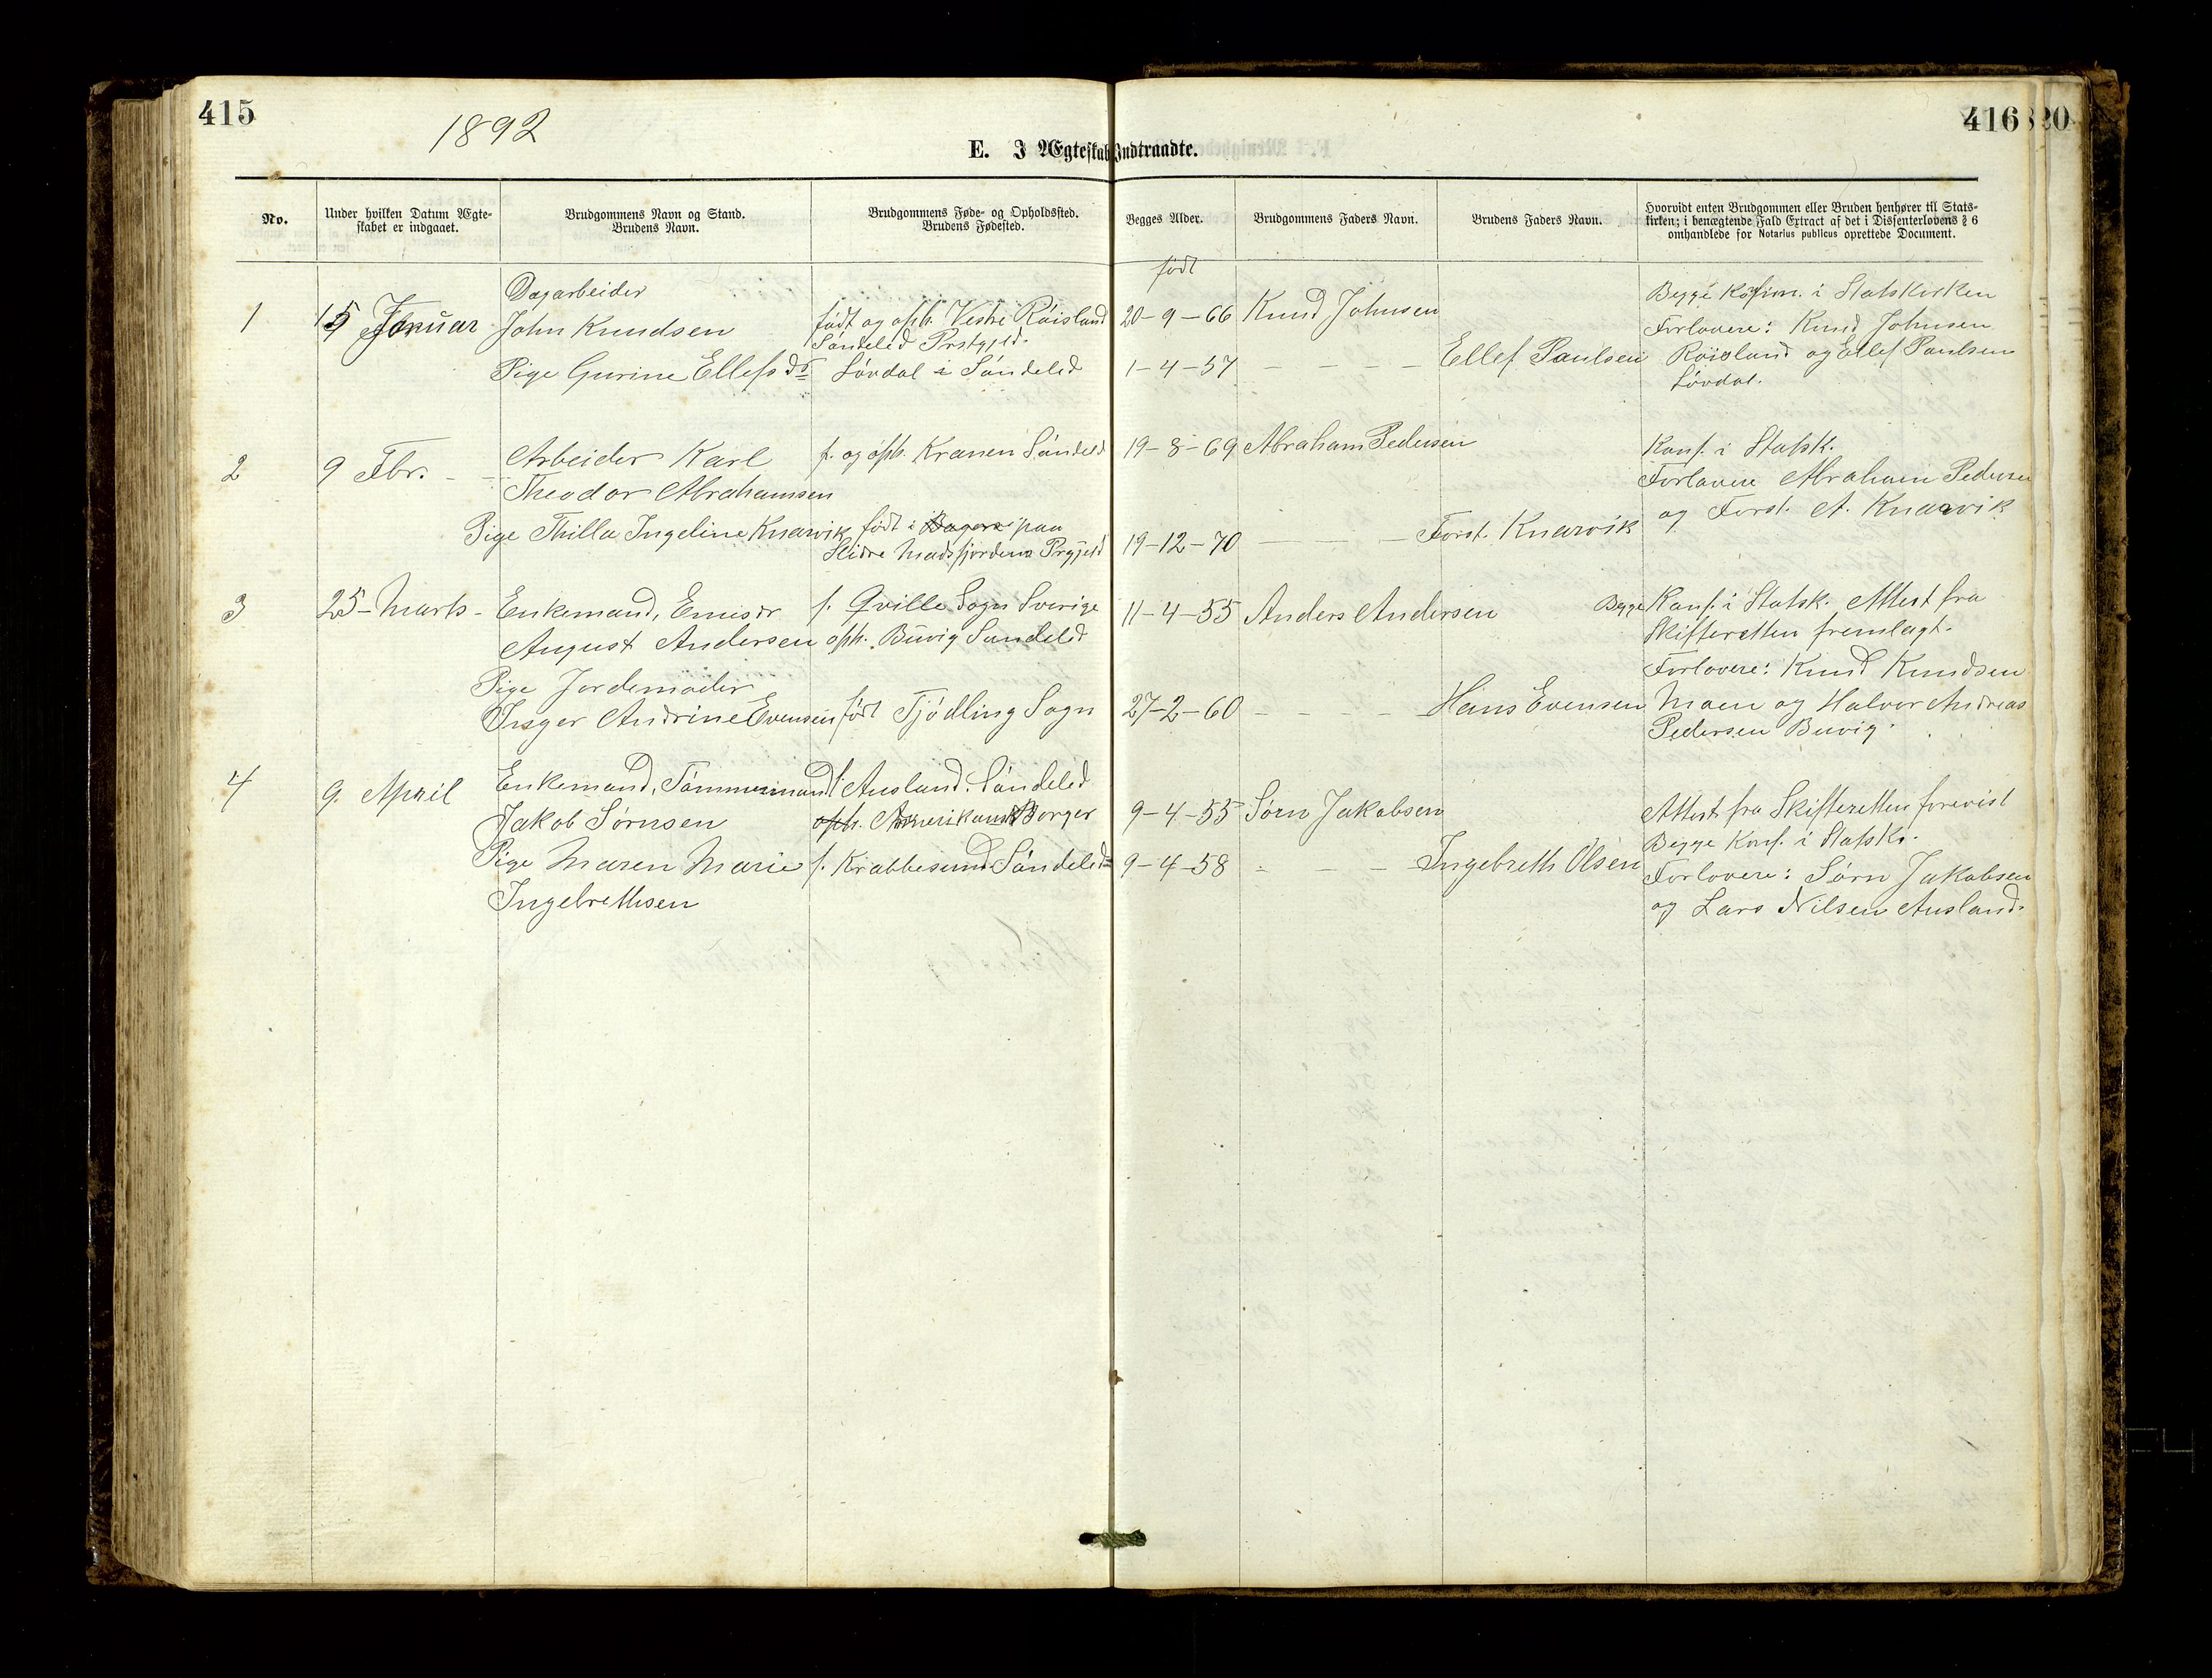 415
416
20
1892
E. I Ægteskab Indtraadte.
No.
Under hvilken Datum Ægte-
skabet er indgaaet.
Brudgommens Navn og Stand.
Brudens Navn.
Brudgommens Føde- og Opholdssted.
Brudens Fødested.
Begges Alder.
Brudgommens Faders Navn.
Brudens Faders Navn.
Hvorvidt enten Brudgommen eller Bruden henhører til Stats-
kirken; i benægtende Fald Extract af det i Dissenterlovens § 6
omhandlede for Notarius publicus oprettede Document.
født
1
15 Januar
Dagarbeider
John Knudsen
Pige Gurine Ellefsd
født og oph. Vestre Röisland
Söndeled Prstgjld.
Lövdal i Söndeled
20-9-66
1-4-57
Knud Johnsen
Ellef Paulsen
Begge Konfirm. i Statskirken
Forlovere: Knud Johnsen
Röisland og Ellef Paulsen
Lövdal.
2
9 Fbr.
Arbeider Karl
Theodor Abrahamsen
Pige Thilla Ingeline Knarvik
f. og oph. Kranen Söndeled
født i paa
Hidre Prgjeld
19-8-69
19-12-70
Abraham Pedersen
Forst. Knarvik
Konf. i Statsk.
Forlovere Abraham Pedersen
og Forst. A. Knarvik
3
25 Marts
Enkemand, Emisær
August Andersen
Pige Jordemoder
Inger Andrine Evensen
f. Qville Sogn Sverige
oph. Buvig Sundeled
født Tjödling Sogn
11-4-55
27-2-60
Anders Andersen
Hans Evensen
Begge Konf. i Statsk. Attest fra
Skifteretten fremlagt.
Forlovere: Knud Knudsen
Moen og Halvor Andreas
Pedersen Buvig.
4
9. April
Enkemand, Tömmermand
Jakob Sörnsen
Pige Maren Marie
Ingebrethsen
f. Ausland. Söndeled
oph. Amerikansk Borger
f. Krabbesund Söndeled
9-4-55
9-4-58
Sörn Jakobsen
Ingebreth Olsen
Attest fra Skifteretten forevist
Begge Konf. i Statsk.
Forlovere: Sörn Jakobsen
og Lars Nilsen Ausland.